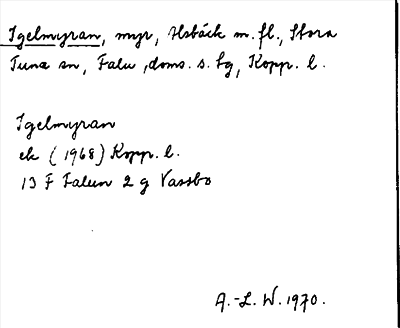 Igelmyran, myr, Ilsbäck m. fl., Stora
Tuna sn, Falu doms. s. tg, Kopp. l.
Igelmyran
ek (1968) Kopp. l.
13 F Falun 2 g Vassbo
A.-L. W. 1970.